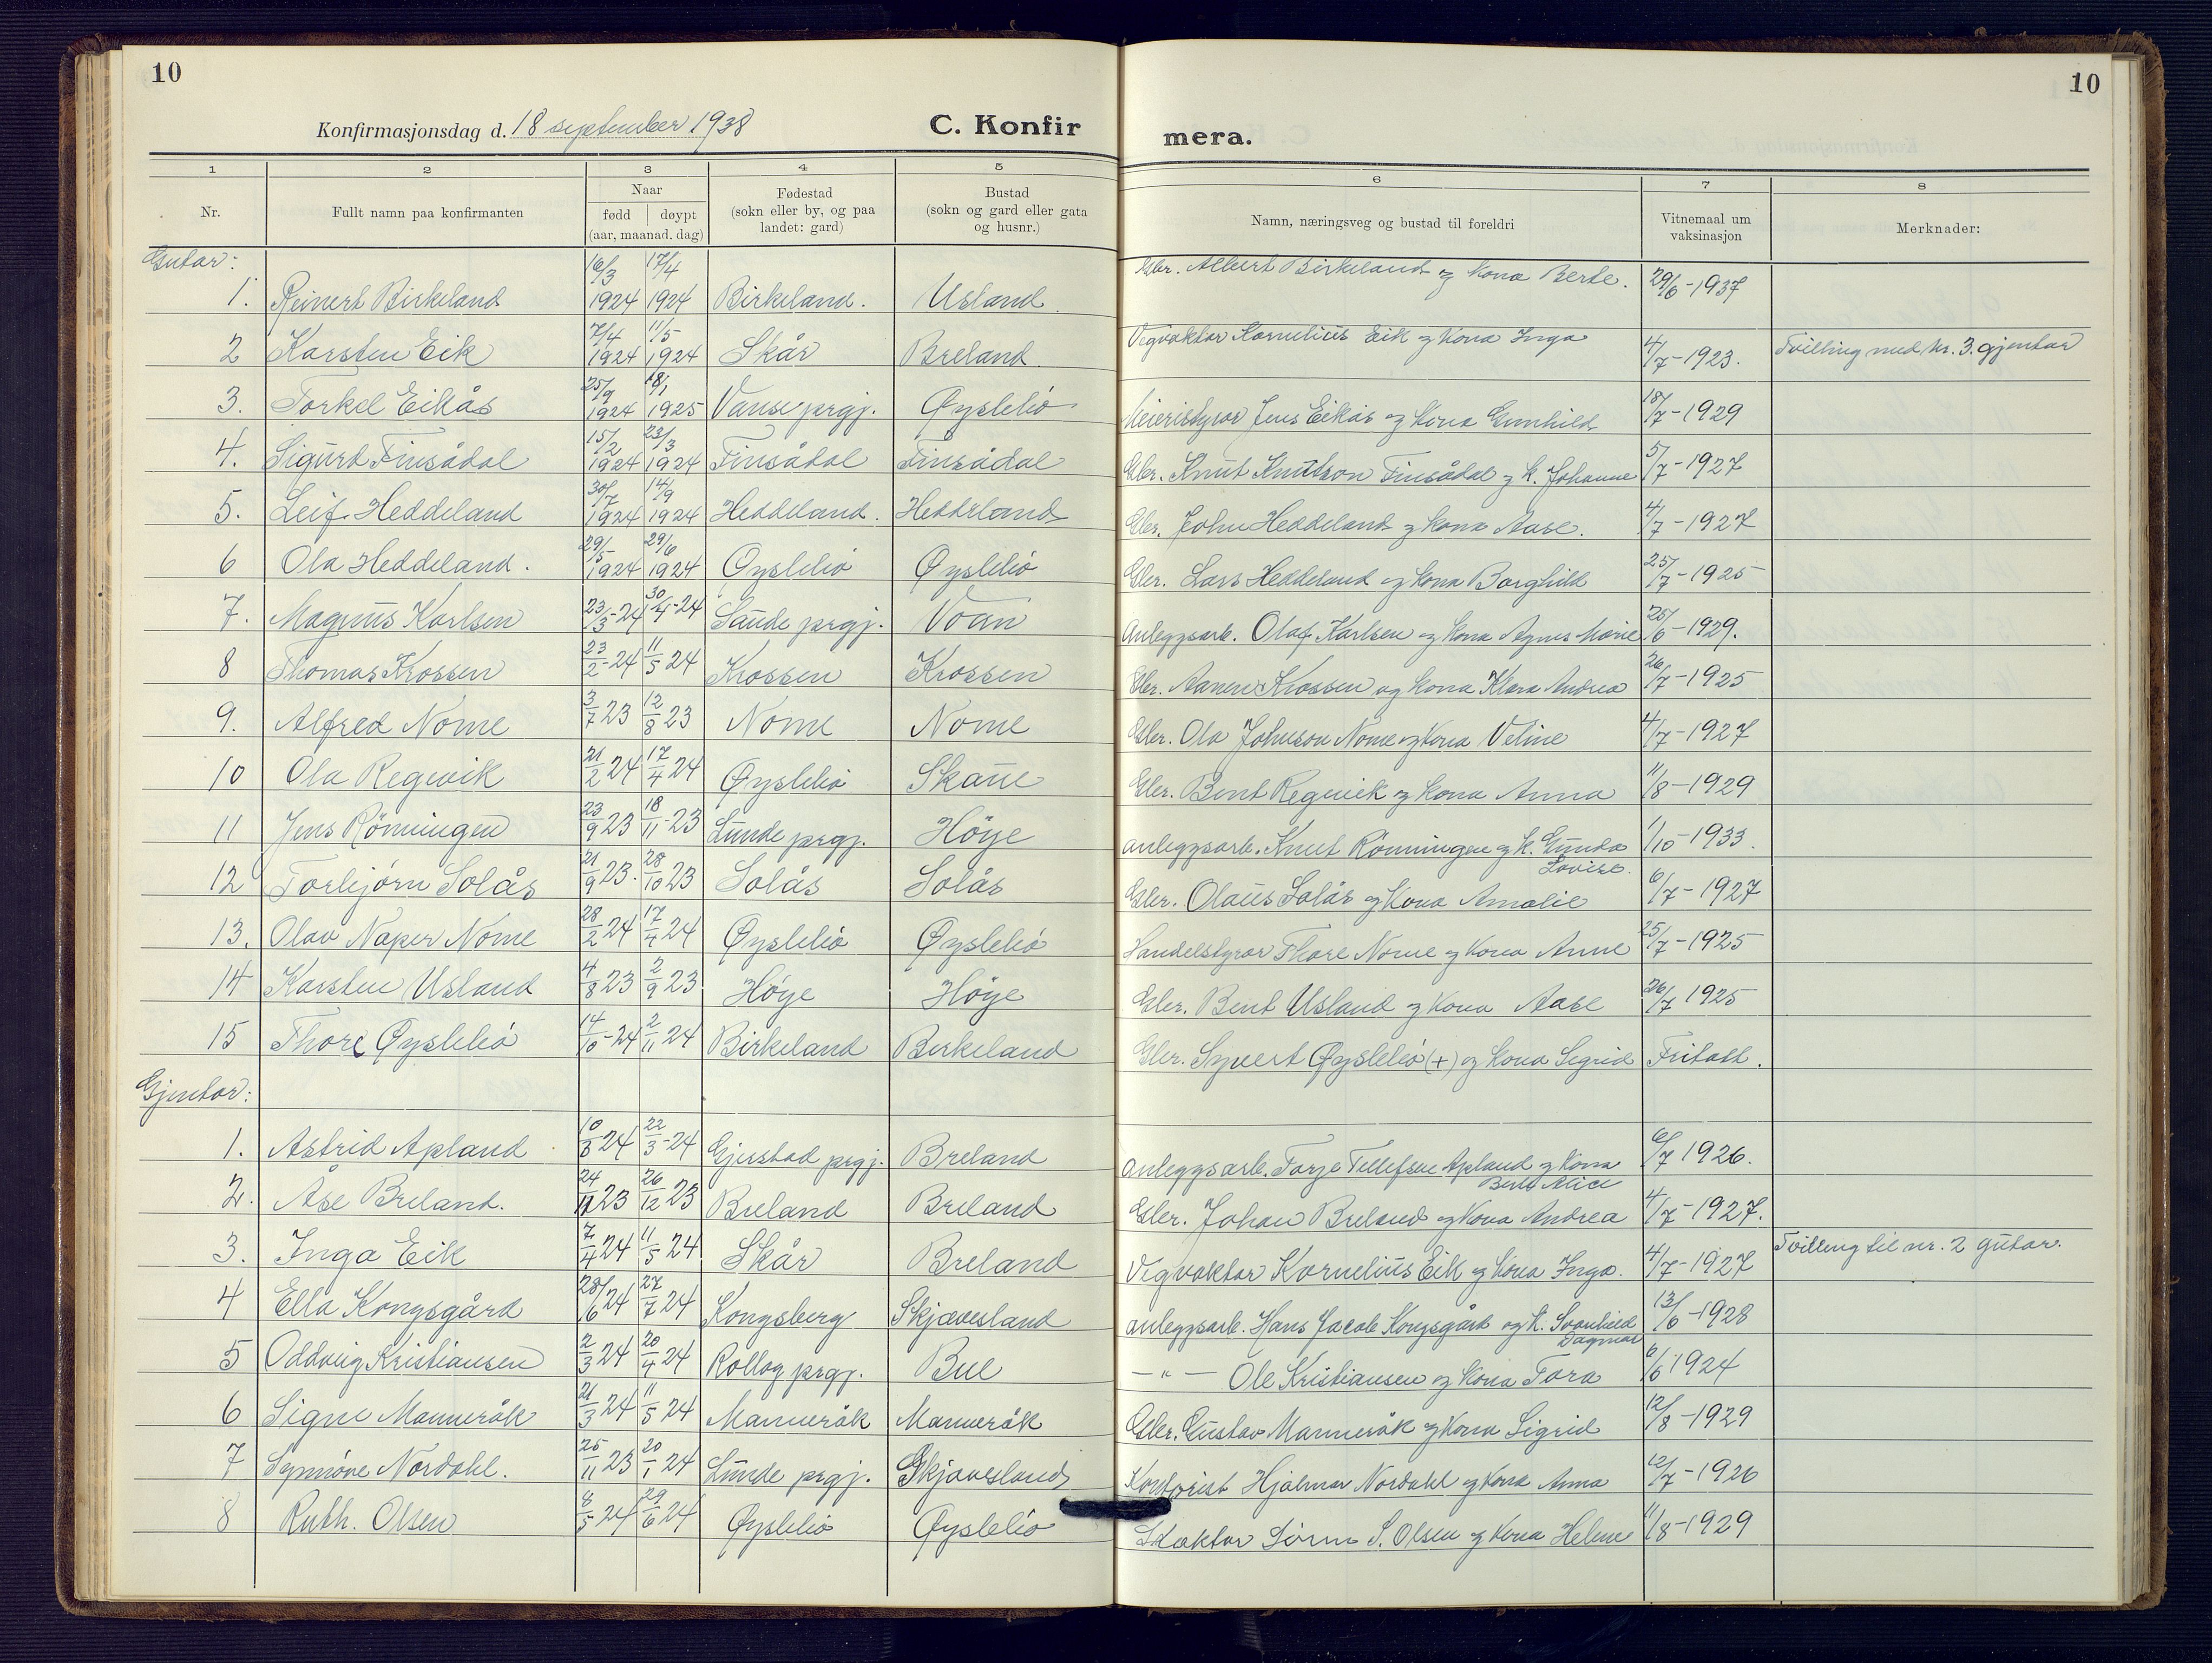 10
10
Konfirmasjonsdag d. 18 september 1938
C. Konfir
mera.
1 2 3 4 5 6 7 8
Nr.
Fullt namn paa konfirmanten
Naar
født døypt
(aar, maanad. dag)
Fødestad
(sokn eller by, og paa
landet: gard)
Bustad
(sokn og gard eller gata
og husnr.)
Namn, næringsveg og bustad til foreldri
Vitnemaal um
vaksinasjon
Merknader:
Gutar:
1. Reinert Birkeland 16/3 1924 17/4 1924 Birkeland. Usland. Gbr. Albert Birkeland og kona Berte. 29/6-1937
2 Karsten Eik 7/4 1924 11/5 1924 Skår Breland. Vegvaktar Kornelius Eik og kona Inga 4/7-1923. Tvilling med nr. 3. gjentar
3. Torkel Eikås 25/9 1924 18/1 1925 Vanse prgj. Øyslebö Meieristyrar Jens Eikås og kona Gunhild 18/7-1929
4. Sigurd Finsådal 15/2 1924 23/3 1924 Finsådal Finsådal Gbr. Knut Knutson Finsådal og k. Johanne 5/7-1927
5. Leif Heddeland 30/7 1924 14/9 1924 Heddeland. Heddeland Gbr. John Heddeland og kona Aase. 4/7-1927
6 Ola Heddeland. 29/5 1924 29/6 1924 Øyslebö Øyslebö Gbr. Lars Heddeland og kona Borghild 25/7-1925
7. Magnus Karlsen 23/3-24 30/4-24 Sande prgj. Voan Anleggsarb. Olaf Karlsen og kona Agnes Marie 25/6-1929.
8 Thomas Krossen 23/2-24 11/5 24 Krossen Krossen Gbr. Aanen Krossen og kona Klara Andrea 26/7-1925
9. Alfred Nome 3/7 23 12/8 23 Nome Nome Gbr. Ola Johnson Nome og kona Veline 4/7-1927
10 Ola Regevik 21/2 24 17/4 24 Øyslebö Skaue Gbr. Bent Regevik og kona Anna 11/8-1929
11 Jens Rönningen 23/9 23 18/11-23 Lunde prgj. Höye anleggsarb. Knut Rönningen og k. Gunda 1/10-1933.
Lovise.
12 Torbjørn Solås 21/9 23. 28/10 23 Solås Solås Gbr. Olaus Solås og kona Amalie 6/7-1927
13. Olav Naper Nome 28/2 24 17/4 24 Øyslebö Øyslebö Handelstyrar Thore Nome og kona Anne 25/7-1925
14 Karsten Usland 4/8 23 2/9 23 Höye Höye Gbr. Bent Usland og kona Aase 26/7 1925
15 Thore Øyslebö 14/10-24 2/11 24 Birkeland Birkeland Gbr. Syvert Øyslebö (+) og kona Sigrid Fritatt.
Gjentar:
1. Astrid Apland 10/3 24 22/3-24 Gjerstad prgj. Breland Anleggsarb. Tarje Tellefsen Apland og kona 6/7 1926.
Berte Alice
2. Åse Breland. 24/11 23 26/12 23 Breland Breland Gbr. Johan Breland og kona Andrea 4/7-1927.
3. Inga Eik 7/4 24 11/5 24 Skår Breland Vegvaktar Kornelius Eik og kona Inga. 4/7-1927 Tvilling til nr. 2 gutar.
4 Ella Kongsgård 28/6 24 27/7 24 Kongsberg Skjævesland anleggsarb. Hans Jacob Kongsgård og k. Svanhild 13/6-1928
Dagmar
5 Oddveig Kristiansen 2/3 24 20/4 24 Rollag prgj. Bue — " — Ole Kristiansen og kona Tora 6/6 1924
6 Signe Mannesåk 21/3 24 11/5 24 Mannesåk Mannesåk Gbr. Gustav Mannesåk og kona Sigrid 12/8-1929
7 Synnöve Nordahl. 25/11 23 20/1 24 Lunde prgj. Skjævesland Kontorist Hjalmar Nordahl og kona Anna 12/7-1926
8 Ruth. Olsen 8/5 24 29/6 24 Øyslebö Øyslebö Sören S. Olsen og kona Helene 11/8-1929